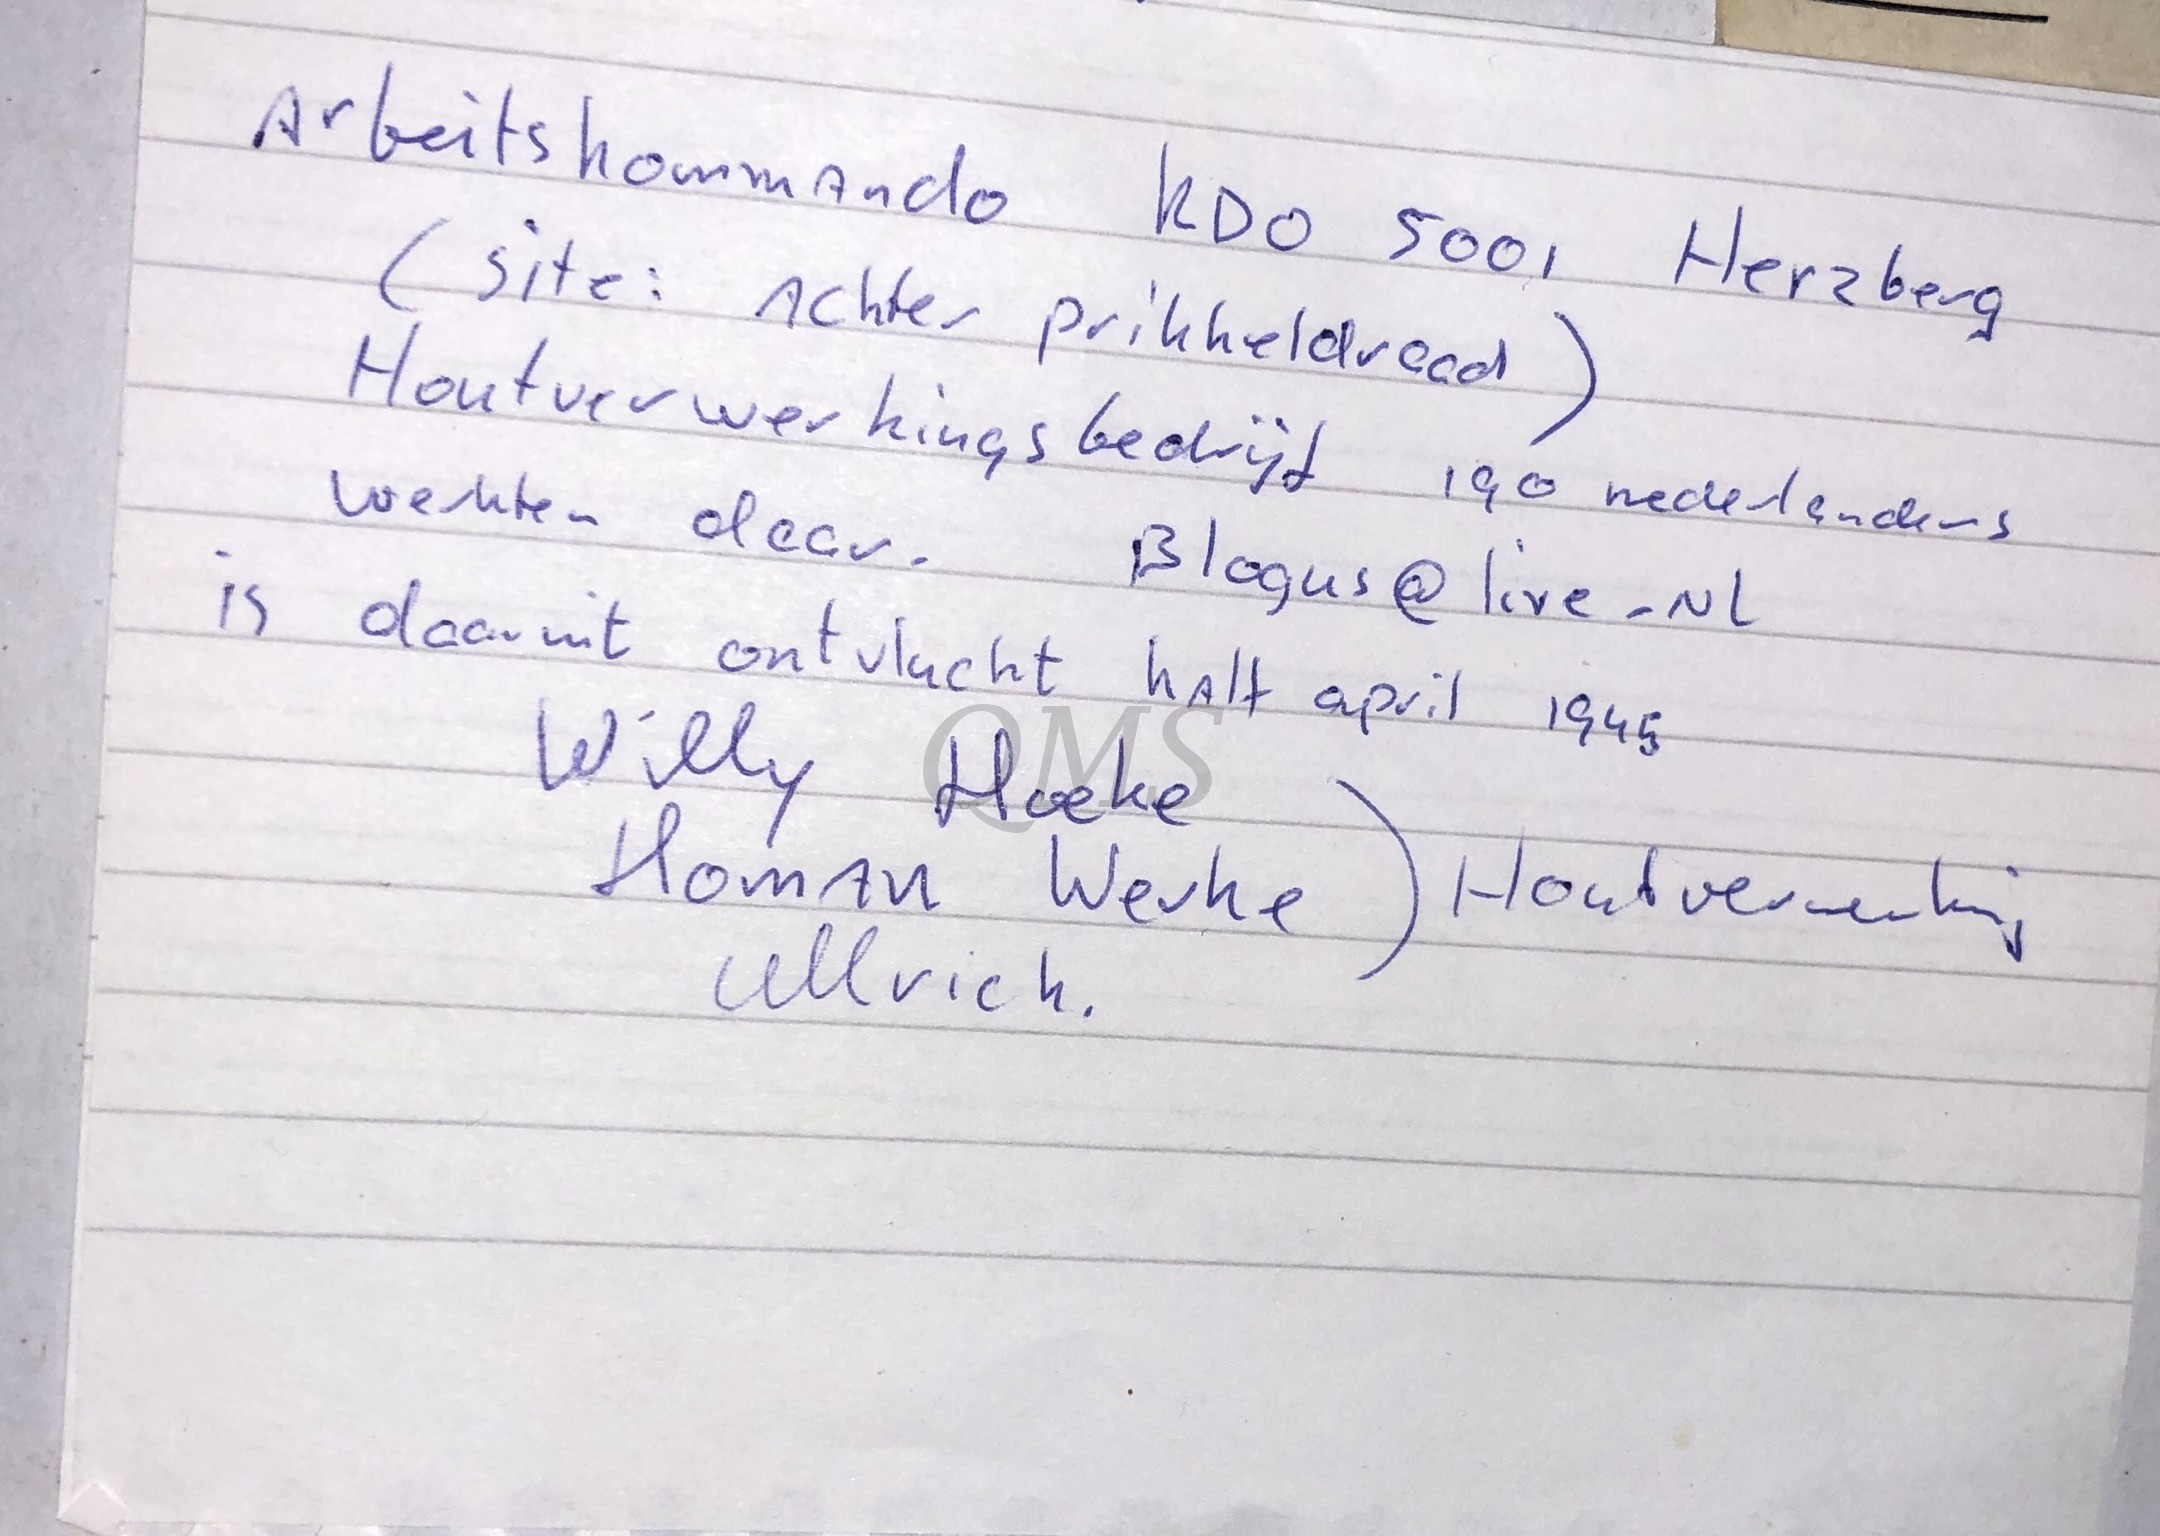 Arbeitskommando KDO 5001 Herzberg
(site: Achter prikkeldraad)
Houtverwerkingsbedrijf 190 nederlanders
werkten daar. Blogus@live.NL
is daaruit ontvlucht half april 1945
QMS
Willy Hoeke
Homan Werke ) Houtverwerking
Ullrich.